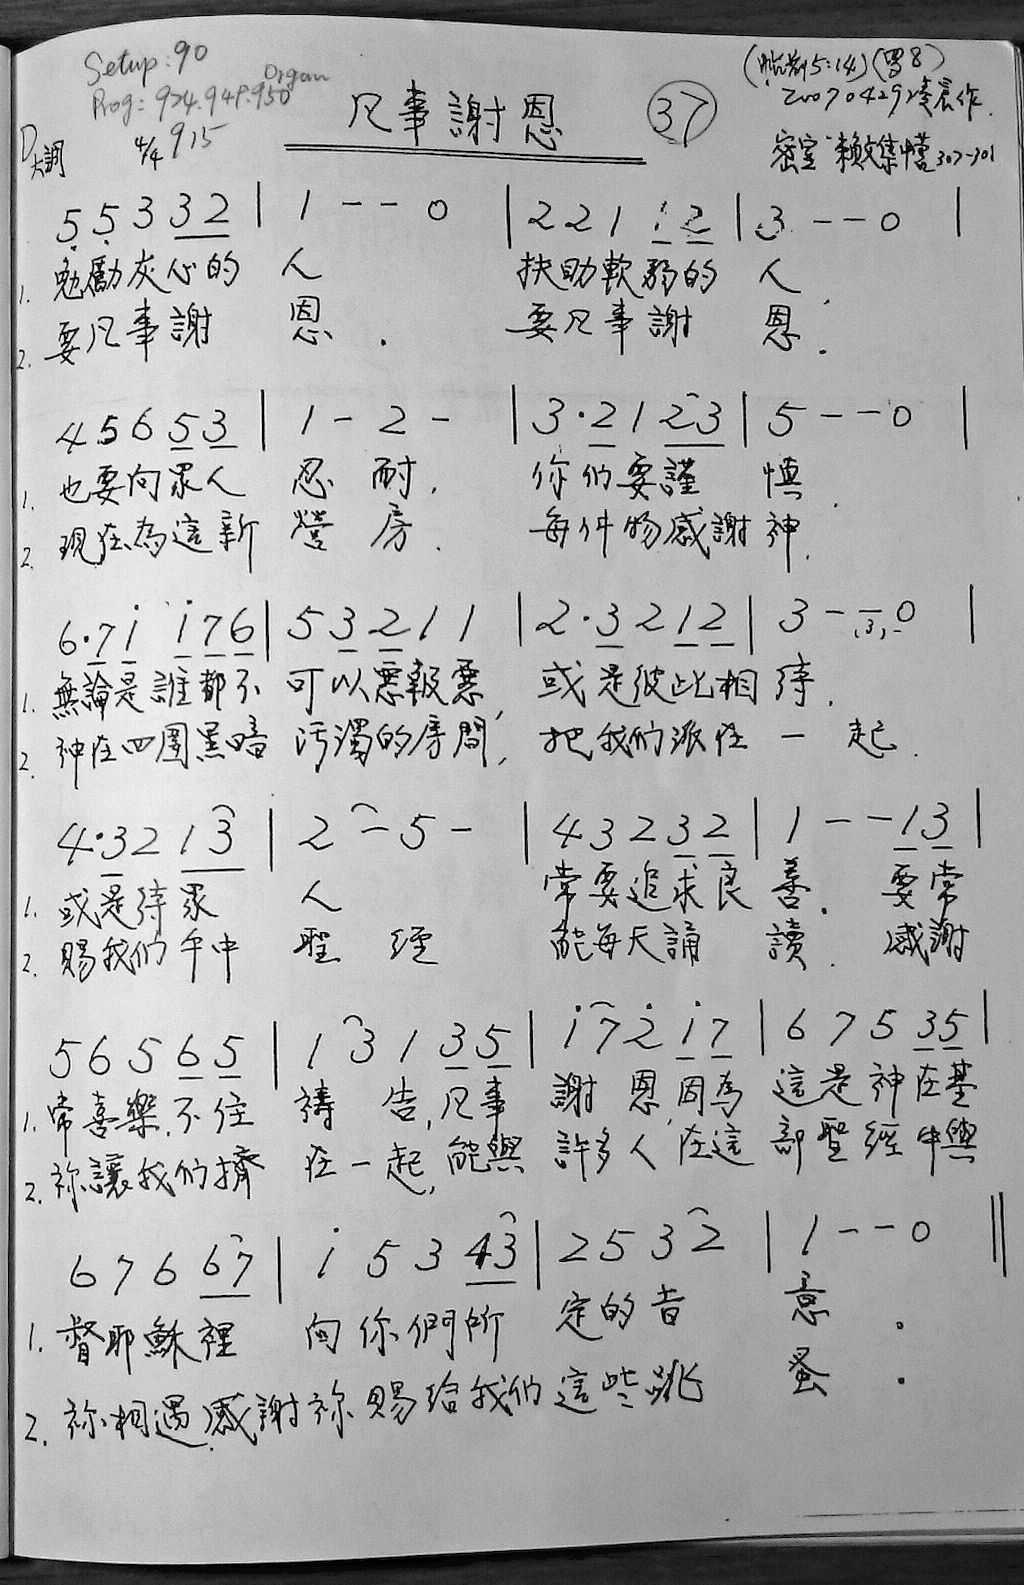 Setup: 90
Prog: 924.949.950 Organ
915
D大調 4/4
凡事謝恩
37
(帖前5:14)(羅8)
20070429凌晨作
密室 307-301
5 5 3 3 2 | 1 - - 0 | 2 2 1 1 2 | 3 - - 0 |
1. 勉勵灰心的 人 扶助軟弱的 人.
2. 要凡事謝 恩. 要凡事謝 恩.
4 5 6 5 3 | 1 - 2 - | 3 · 2 1 2 3 | 5 - - 0 |
1. 也要向眾人 忍 耐, 你们要謹 慎.
2. 現在為這新 營 房. 每件物感謝 神.
6 · 7 i i 7 6 | 5 3 2 1 1 | 2 · 3 2 1 2 | 3 - - 0 (3) |
1. 無論是誰都不 可以惡報惡, 或是彼此相 待.
2. 神在四圍黑暗 污濁的房間, 把我们派在 一 起.
4 · 3 2 1 3 | 2 - 5 - | 4 3 2 3 2 | 1 - - 1 3 |
1. 或是待眾 人 常要追求良 善. 要常
2. 賜我们手中 聖 經 能每天誦 讀. 感謝
5 6 5 6 5 | 1 3 1 3 5 | i 7 2 i 7 | 6 7 5 3 5 |
1. 常喜樂,不住 禱 告,凡事 謝 恩,因為 這是神在基
2. 祢讓我们擠 在一起,能與 許多人在這 部聖經中與
6 7 6 6 7 | i 5 3 4 3 | 2 5 3 2 | 1 - - 0 ||
1. 督耶穌裡 向你們所 定的旨 意.
2. 祢相遇,感謝祢賜给我们這些跳 蚤.